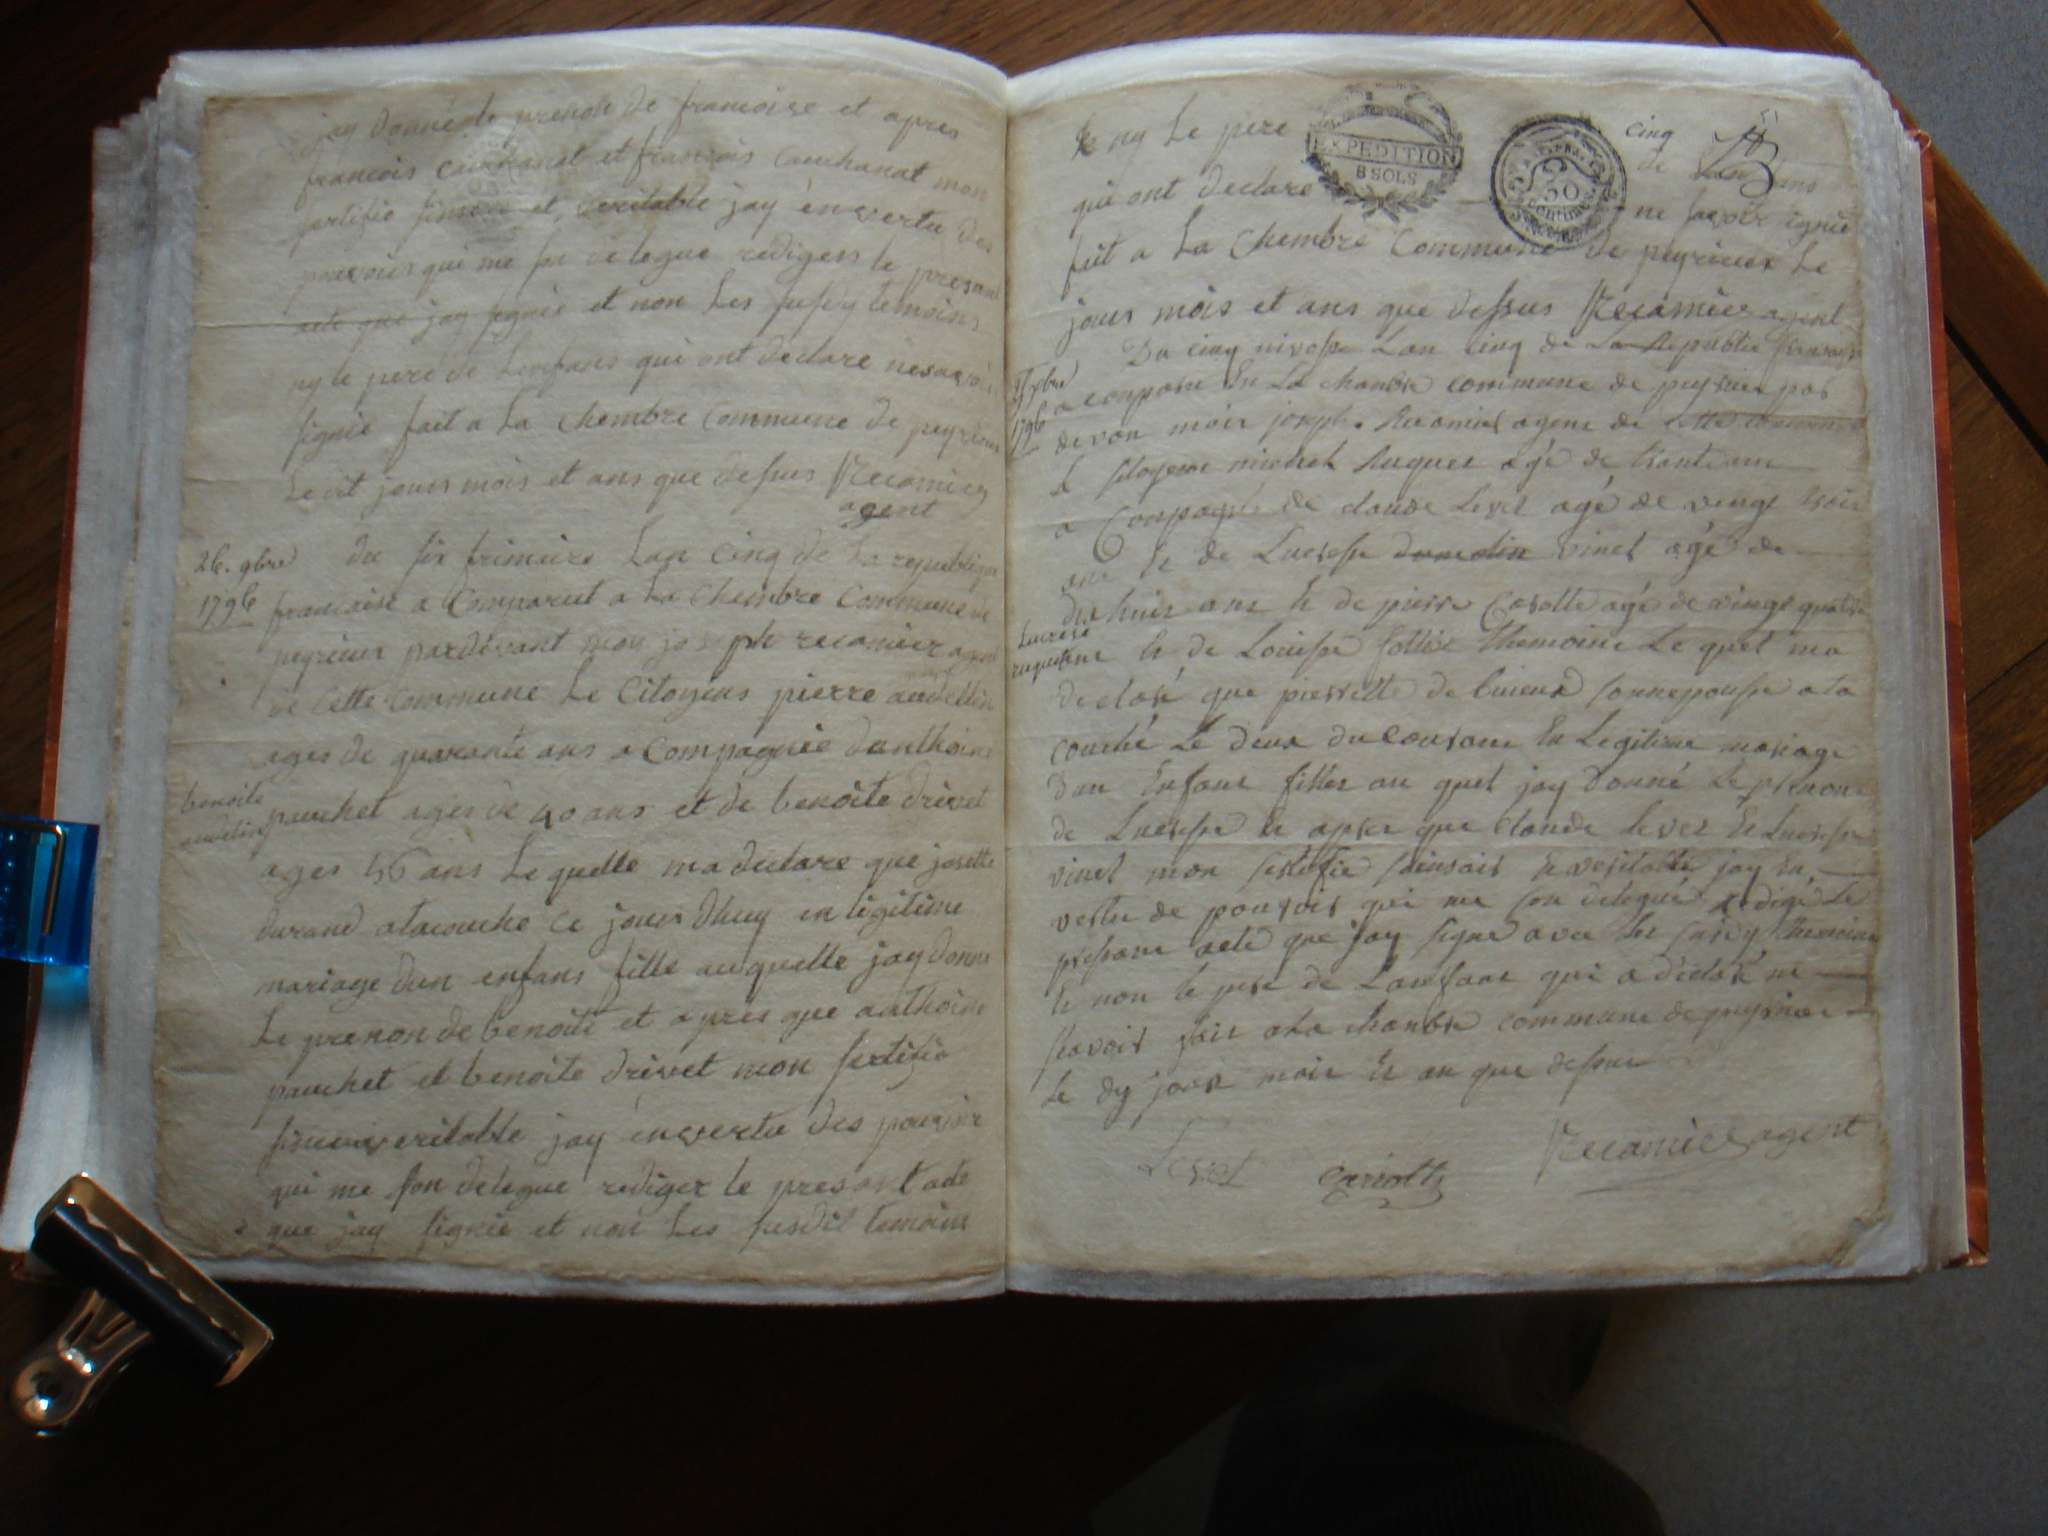 jay donné le prenon de francoise et apres
francois cauchanat et francois cauchanat mon
sertifie sinsere et veritable jay en vertu des
pouvoirs qui me son delegue redigers le presant
acte que jay signié et non les susdy temoins
ny le pere de Lenfans qui ont declare ne savoir
signié fait a La Chembre Commune de peyrieux
Le dit jours mois et ans que desus Recamier
agent
26. 9bre
1796
du six frimaire Lan Cinq de La republique
francaise a Comparut a La Chembre Commune de
peyrieux pardevant mon joseph recamier agent
de Cette Commune Le Citoyens pierre
ages de quarante ans a Compagnie danthoine
benoite
pauchet ages de 40 ans et de benoite drivet
ages 46 ans Le quelle ma declare que josette
durand atacouche ce jours dhuy en legitime
mariage dun enfans fille auquelle jay donné
Le prenon de benoite et apres que anthoine
pauchet et benoite drivet mon sertifie
sincere veritable jay en vertu des pouvoir
qui me son delegue rediger le presant acte
que jay signié et non Les susdit temoins
ny Le pere
EXPEDITION
8 SOLS
50
Centimes
cinq
51
de
qui ont declare ne savoir signié
fait a La Chembre Commune de peyrieux Le
jours mois et ans que dessus Recamier agent
1796
Du cinq nivosse Lan Cinq de La Republic
a conparu En La chanbre commune de peyrieu par
devan moir joseph Recamier agent de cette commune
Le sitoyent michel Ruquet agé de trante ans
a Conpagné de claude Levet agé de vingt trois
ans et de Lucresse vinet agé de
dix huis ans et de pierre agé de vingt quatre
Lucrese
ruquet
ans et de Louisse themoins Le quel ma
declaré que pierrette de son nepousse a la
couché Le deux du courant En Legitime mariage
dun Enfant filles au quel jay donné Le prenom
de Lucresse et apres que claude Levet et Lucresse
vinet mon sertifié sainsait et veritable jay En
vertu de pouvoir qui me son delegué redigé Le
presant acte que jay signe avec les susdy themoins
et non le pere de Lansant qui a declaré ne
scavoir fait a la chanbre commune de peyrieu
Le dy jour mois et an que dessus
Levet
Recamier agent